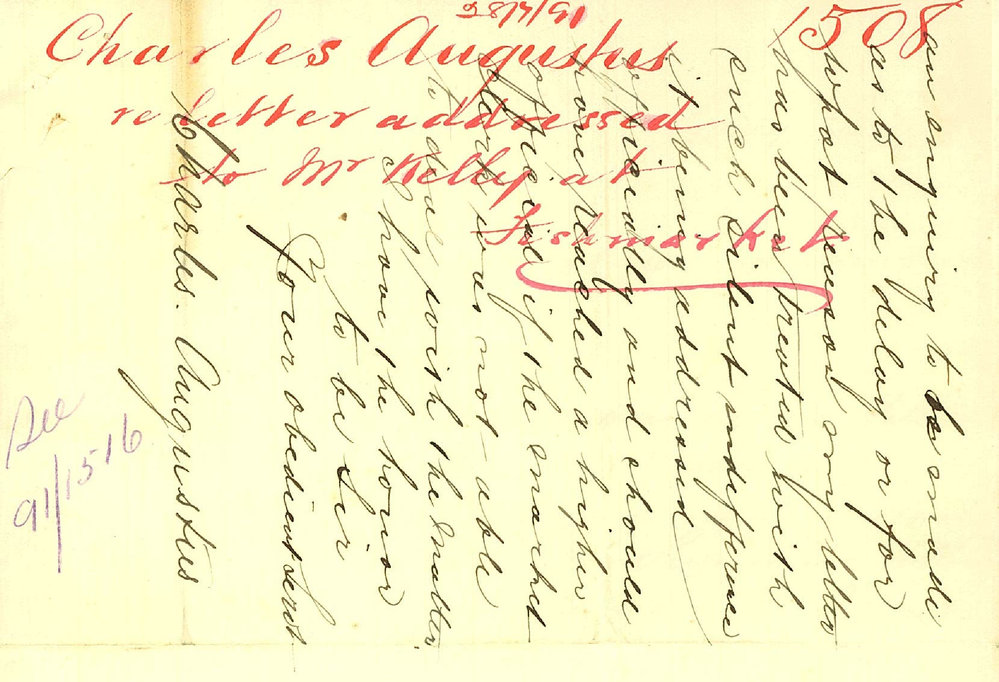 28/7/91
1508
Charles Augustus
re letter addressed
to Mr Kelly at
Fishmarket
an enquiry to be made
as to the delay or for
what reason my letter
has been treated with
such silent indifference
it being addressed
officially and should
have reached a higher
official if the market
clerk was not able
to deal with the matter
I have the honor
to be Sir
Your obedient Servt
Charles. Augustus
See
91/1516